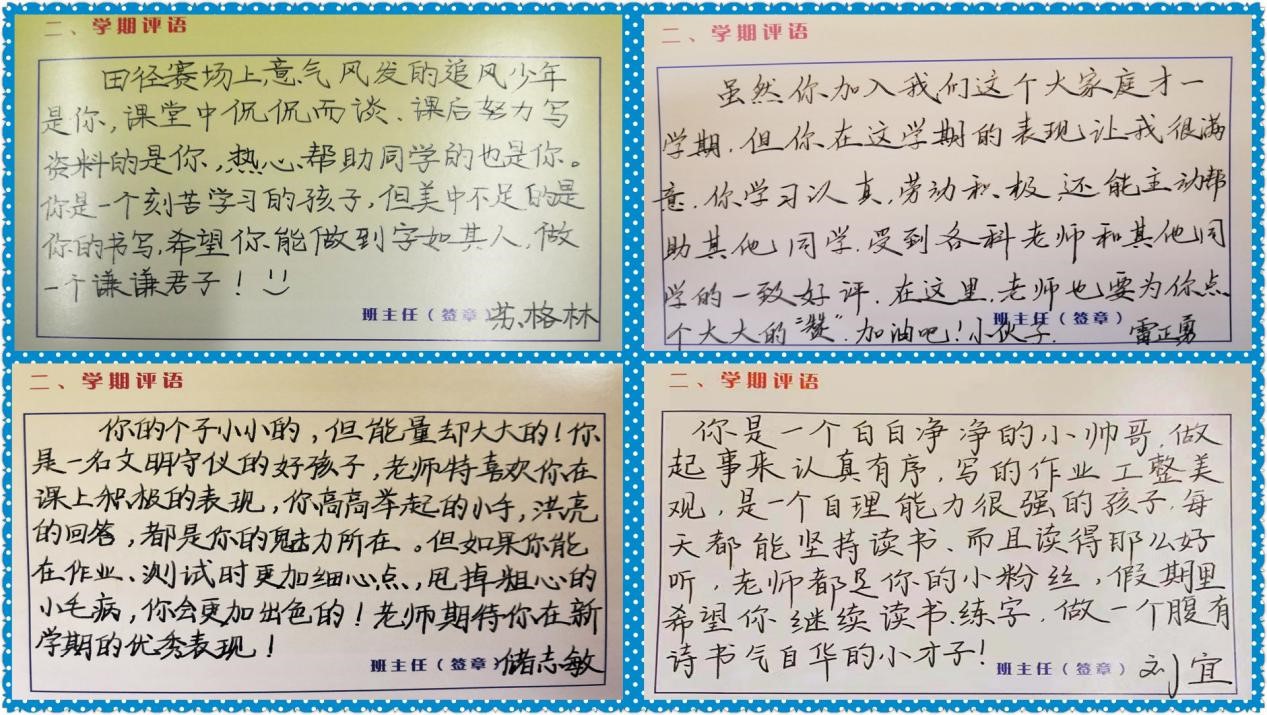 二、学期评语
田径赛场上,意气风发的追风少年
是你,课堂中侃侃而谈、课后努力写
资料的是你,热心帮助同学的也是你。
你是一个刻苦学习的孩子,但美中不足的是
你的书写,希望你能做到字如其人,做
一个谦谦君子!
班主任(签章)苏格林
二、学期评语
虽然你加入我们这个大家庭才一
学期.但你在这学期的表现让我很满
意.你学习认真,劳动积极,还能主动帮
助其他同学.受到各科老师和其他同
学的一致好评.在这里,老师也要为你点
个大大的“赞”.加油吧!小伙子.
班主任(签章)雷正勇
二、学期评语
你的个子小小的,但能量却大大的!你
是一名文明守仪的好孩子,老师特喜欢你在
课上积极的表现,你高高举起的小手,洪亮
的回答,都是你的魅力所在。但如果你能
在作业、测试时更加细心点,甩掉粗心的
小毛病,你会更加出色的!老师期待你在新
学期的优秀表现!
班主任(签章)储志敏
二、学期评语
你是一个白白净净的小帅哥,做
起事来认真有序,写的作业工整美
观,是一个自理能力很强的孩子.每
天都能坚持读书、而且读得那么好
听,老师都是你的小粉丝,假期里
希望你继续读书、练字,做一个腹有
诗书气自华的小才子!
班主任(签章)刘宜